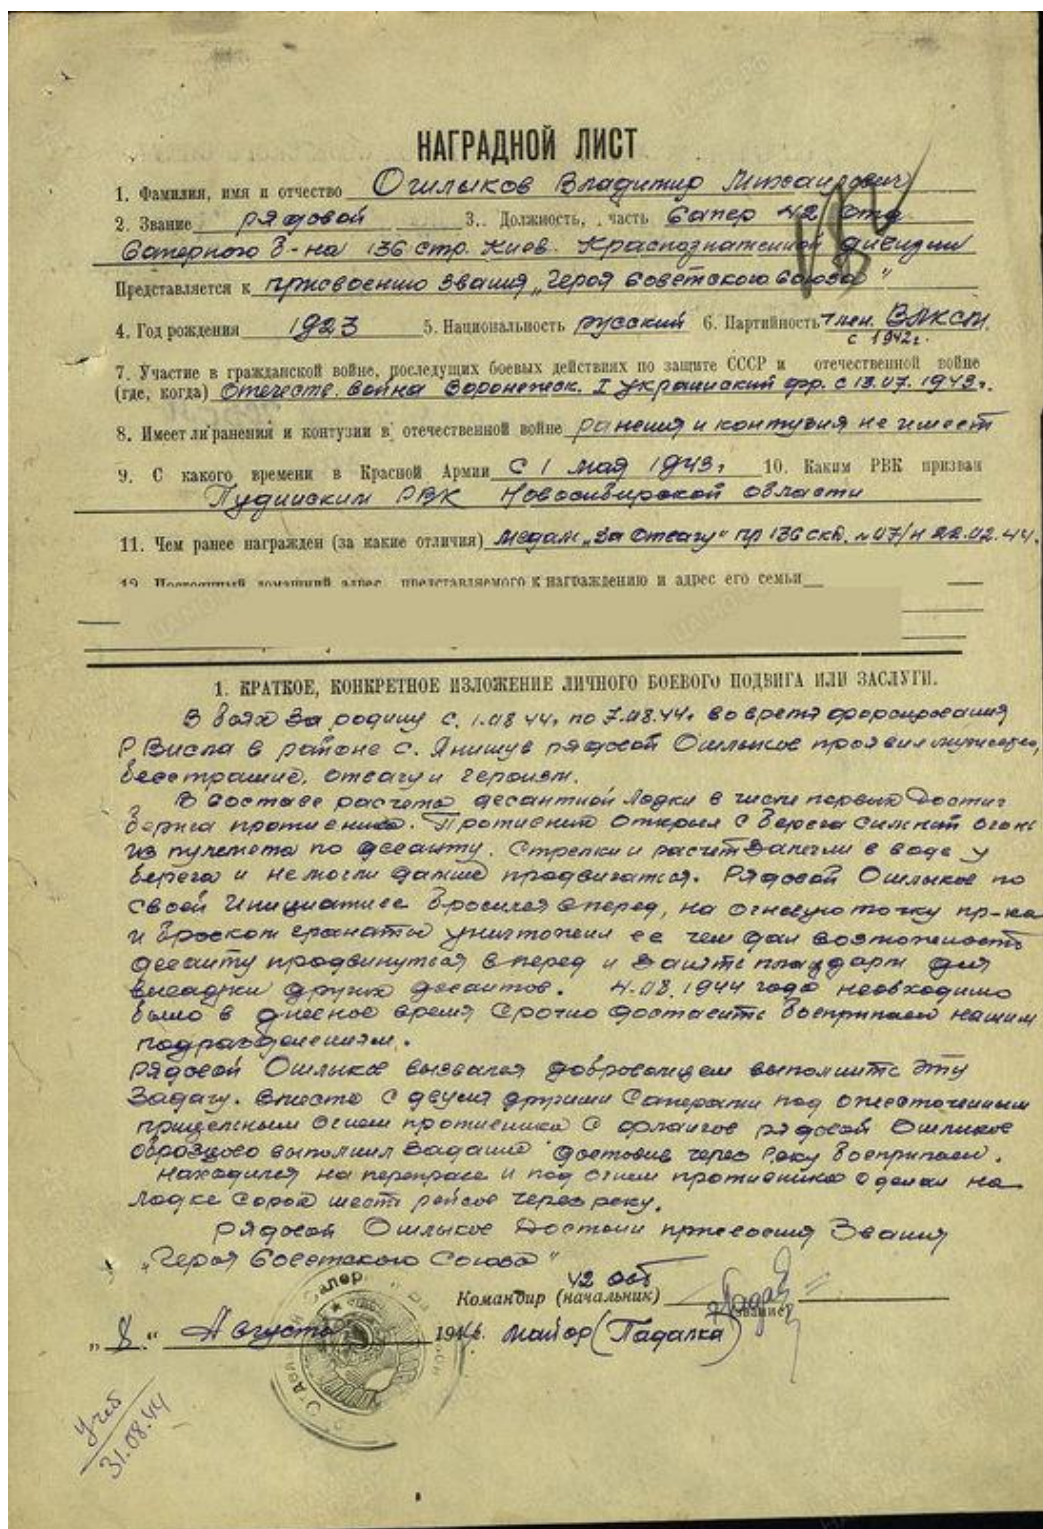 НАГРАДНОЙ ЛИСТ
1. Фамилия, имя и отчество Ошлыков Владимир Михайлович
2. Звание рядовой 3. Должность, часть Сапер 42 отд
Саперного б-на 136 стр. Киев. Краснознаменной дивизии
Представляется к присвоению звания „Героя Советского Союза"
4. Год рождения 1923 5. Национальность русский 6. Партийность член. ВЛКСМ.
с 1942г.
7. Участие в гражданской войне, последущих боевых действиях по защите СССР и отечественной войне
(где, когда) Отечеств. война Воронежск. I Украинский фр. с 13.07.1943г.
8. Имеет ли ранения и контузии в отечественной войне ранения и контузия не имеет
9. С какого времени в Красной Армии С 1 мая 1943г 10. Каким РВК призван
Пудинским РВК Новосибирской области
11. Чем ранее награжден (за какие отличия) Медаль „За Отвагу" пр 136 скд. №07/н 22.02.44.
12. Постоянный домашний адрес представляемого к награждению и адрес его семьи
1. КРАТКОЕ, КОНКРЕТНОЕ ИЗЛОЖЕНИЕ ЛИЧНОГО БОЕВОГО ПОДВИГА ИЛИ ЗАСЛУГИ.
В боях за родину с. 1.08.44г по 7.08.44г во время форсирования
Р Висла в районе с. Янишув рядовой Ошлыков проявил мужество,
бесстрашие, отвагу и героизм.
В составе расчета десантной лодки в числе первых достиг
берега противника. Противник открыл с берега сильный огонь
из пулемета по десанту. Стрелки и расчет залегли в воде у
берега и не могли дальше продвигаться. Рядовой Ошлыков по
своей инициативе бросился вперед, на огневую точку пр-ка
и броском гранаты уничтожил ее чем дал возможность
десанту продвинуться вперед и занять плацдарм для
высадки других десантов. 4.08.1944 года необходимо
было в дневное время срочно доставить боеприпасы нашим
подразделениям.
Рядовой Ошлыков вызвался добровольцем выполнить эту
задачу. Вместе с двумя другими саперами под ожесточенным
прицельным огнем противника с флангов рядовой Ошлыков
образцово выполнил задание доставив через реку боеприпасы.
Находился на переправе и под огнем противника сделал на
лодке сорок шесть рейсов через реку.
Рядовой Ошлыков достоин присвоения Звания
„Героя Советского Союза"
42 осб
Командир (начальник)
„8" Августа 1944г. майор (Падалка)
Учеб
31.08.44